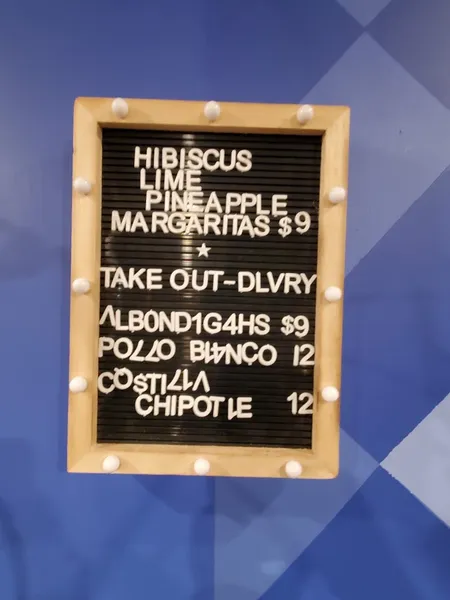 HIBISCUS
LIME
PINEAPPLE
MARGARITAS $9
★
TAKE OUT-DLVRY
ALBOND1G4HS $9
PO77O BI4NCO 12
COSTI71A
CHIPOTLE 12